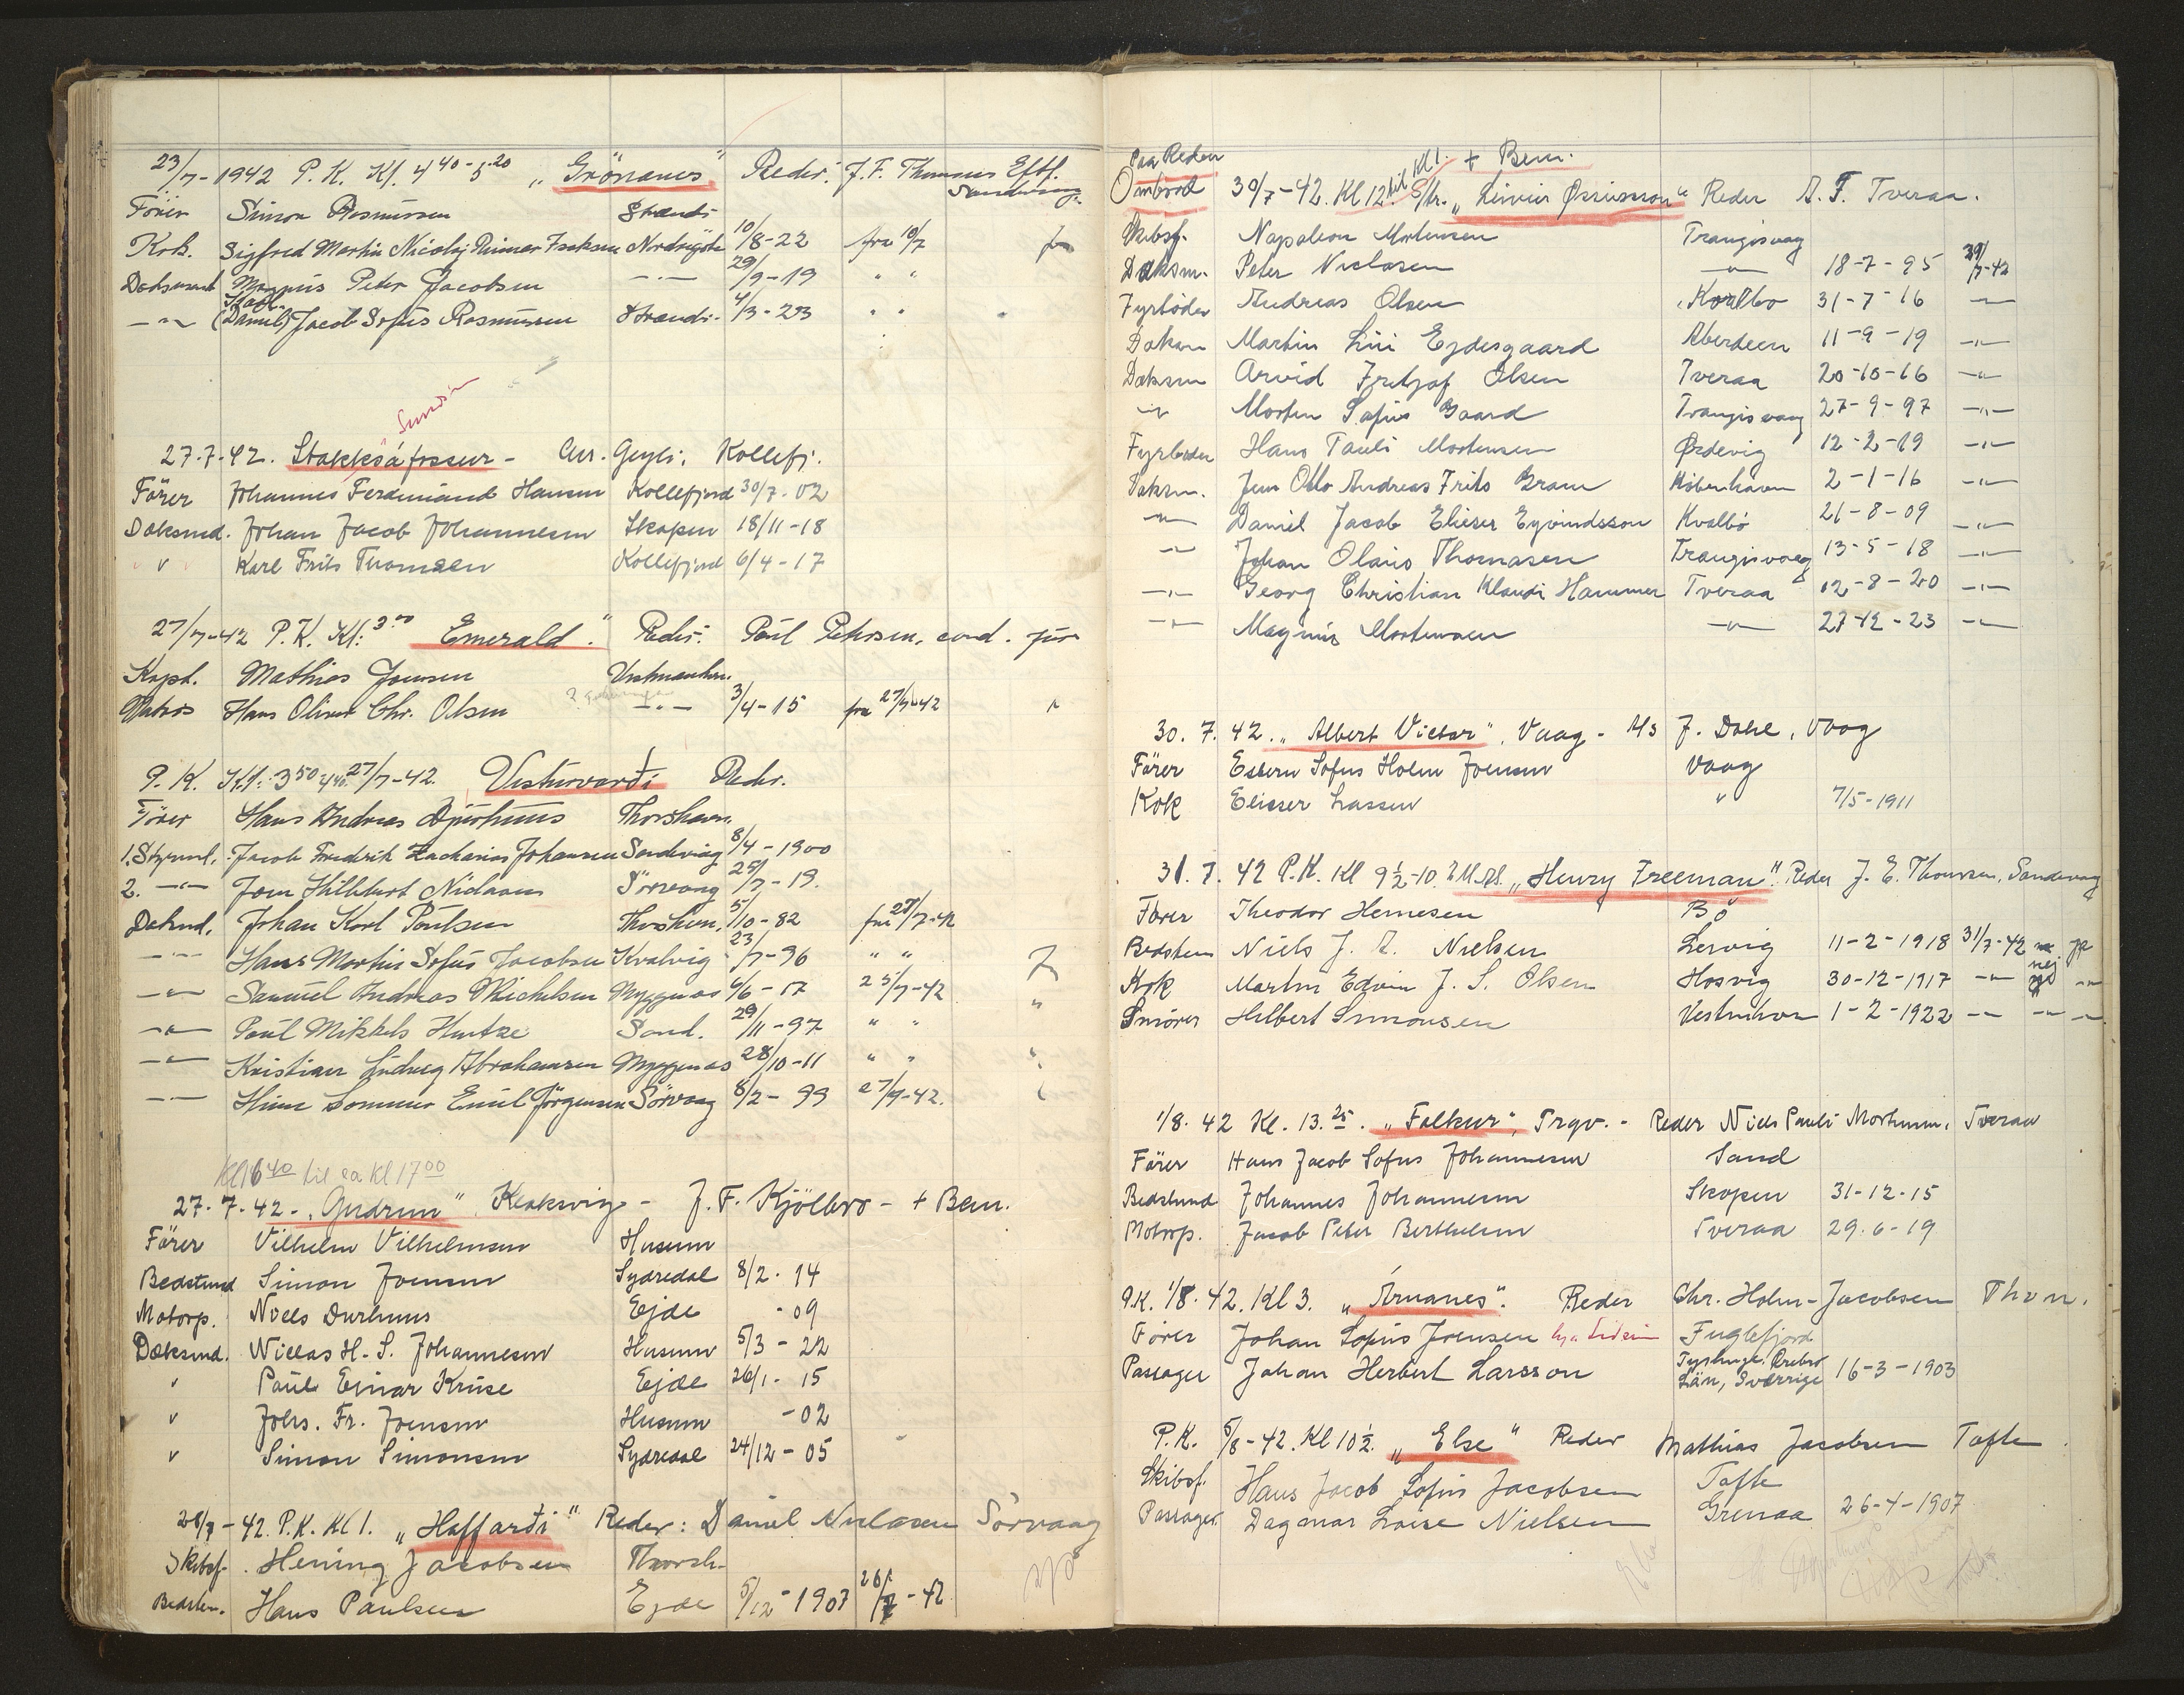 23/7-1942 P. K. Kl. 4 40 - 5 20 „Grönanes" Reder. J. F. Thomsens Eftf. Sandevaag.
Förer Simon Rasmussen Strendi
Kok. Sigfred Martin Nicolaj Reimer Isaksen Nordragöta 10/8-22 fra 10/7 ja
Dæksmand Magnus Peter Jacobsen —"— 29/9-19 " "
—"— (Daniel) Jacob Sofus Rasmussen Strendi. 4/3-23 " "
Sundini
27.7.42. Stakksáfossur - Chr. Geyti, Kollefj.
Förer Johannes Ferdinand Hansen Kollefjord 30/7-02
Dæksmd. Johan Jacob Johannesen Skopun 18/11-18
" Karl Frits Thomsen Kollefjord 6/4-17
27/7-42 P.K. Kl: 3 00 „Emerald." Reder: Poul Petersen, cand. jur
Kapt. Mathias Joensen Vestmanhn.
Matros Hans Oliver Chr. Olsen —"— 3/4-15 fra 27/7-42
P. K. Kl: 3 50 27/7-42. Vesturvarði Reder.
Förer Hans Andreas Djurhuus Thorshavn.
1. Styrmd. Jacob Fredrik Zacharias Johansen Sandevaag 8/4-1900
2. —"— Joen Hilbert Niclasen Sörvaag 25/7-19.
Dæksmd. Johan Karl Poulsen Thorshavn. 5/10-82 fra 27/7-42
—"— Hans Martin Sofus Jacobsen Kvalvig 23/7-96 " "
—"— Samuel Andreas Michelsen Myggenæs 6/6-17 25/7-42 "
—"— Poul Mikkels Hentze Sand. 29/11-97 " "
—"— Kristian Ludvig Abrahamsen Myggenæs 28/10-11 " "
—"— Hans Sommer Emil Jörgensen Sörvaag 8/2-99 27/7-42.
Kl 16 40 til ca Kl 17 00
27.7.42 - „Gudrun" Klaksvig - J. F. Kjölbro - + Bem.
Förer Vilhelm Vilhelmsen Husum
Bedstemd Simon Joensen Sydredal 8/2. 14
Motorp. Niels Durhuus Ejde - 09
Dæksmd. Niclas H. S. Johannesen Husum 5/3 - 22
" Paul Einar Kruse Ejde 26/1 - 15
" Johs. Fr. Joensen Husum - 02
" Simon Simonsen Sydredal 24/12 - 05
28/7-42. P.K. Kl 1. „Haffarði" Reder: Daniel Niclasen Sörvaag
Skibsf. Hening Jacobsen Thorsh.
Bedstem. Hans Paulsen Ejde 5/12-1907 28/7-42
Paa Reden
Ombord 30/7-42. Kl 12 til Kl 1. S/tr. „Leivur Øssursson" + Bem. Reder A. F. Tveraa.
Skibsf. Napoleon Mortensen Trangisvaag
Dæksm. Peter Niclasen —"— 18-7-95 29/7-42
Fyrböder Andreas Olsen Kvalbo 31-7-16 —"—
Dæksm Martin Lüi Ejdesgaard Aberdeen 11-9-19 —"—
Dæksm Arvid Fritjof Olsen Tveraa 20-10-16 —"—
—"— Morten Sofus Gaard Trangisvaag 27-9-97 —"—
Fyrböder Hans Pauli Mortensen Ørdevig 12-2-19 —"—
Dæksm. Jens Otto Andreas Frits Gram København 2-1-16 —"—
—"— Daniel Jacob Elieser Eyvindsson Kvalbö 21-8-09 —"—
—"— Johan Olaus Thomasen Trangisvaag 13-5-18 —"—
—"— Georg Christian Klaudi Hammer Tveraa 12-8-20 —"—
—"— Magnus Mortensen —"— 27-12-23 —"—
30. 7. 42. „Albert Victor", Vaag - M/s J. Dahl, Vaag
Förer Esbern Sofus Holm Joensen Vaag
Kok Elieser Lassen " 7/5-1911
31. 7. 42 P.K. Kl 9½-10. „Henry Freeman" Reder J. E. Thomsen, Sandevaag
Förer Theodor Hernesen Bö
Bedstem Niels J. A. Nielsen Lervig 11-2-1918 31/7-42 nej ja
Kok Martin Edvin J. S. Olsen Hosvig 30-12-1917 —"— —"—
Smörer Hilbert Simonsen Vestmhavn 1-2-1922 —"— —"— —"—
1/8. 42 Kl. 13.25. „Falkur", Trgv. - Reder Niels Pauli Mortensen, Tveraa
Förer Hans Jacob Sofus Johannesen Sand
Bedstemd Johannes Johannesen Skopun 31-12-15
Motorp. Jacob Peter Berthelsen Tveraa 29.6-19
P.K. 1/8. 42. Kl 3. „Árnanes". Reder Chr. Holm-Jacobsen Thvn.
Förer Johan Sofus Joensen Fuglefjord
Passager Johan Herbert Larsson Örebro Län, Sverrige 16-3-1903
P.K. 5/8-42. Kl 10½. „Else" Reder Mathias Jacobsen Tofte
Skibsf. Hans Jacob Sofus Jacobsen Tofte
Passager. Dagmar Loise Nielsen Grenaa 26-4-1907